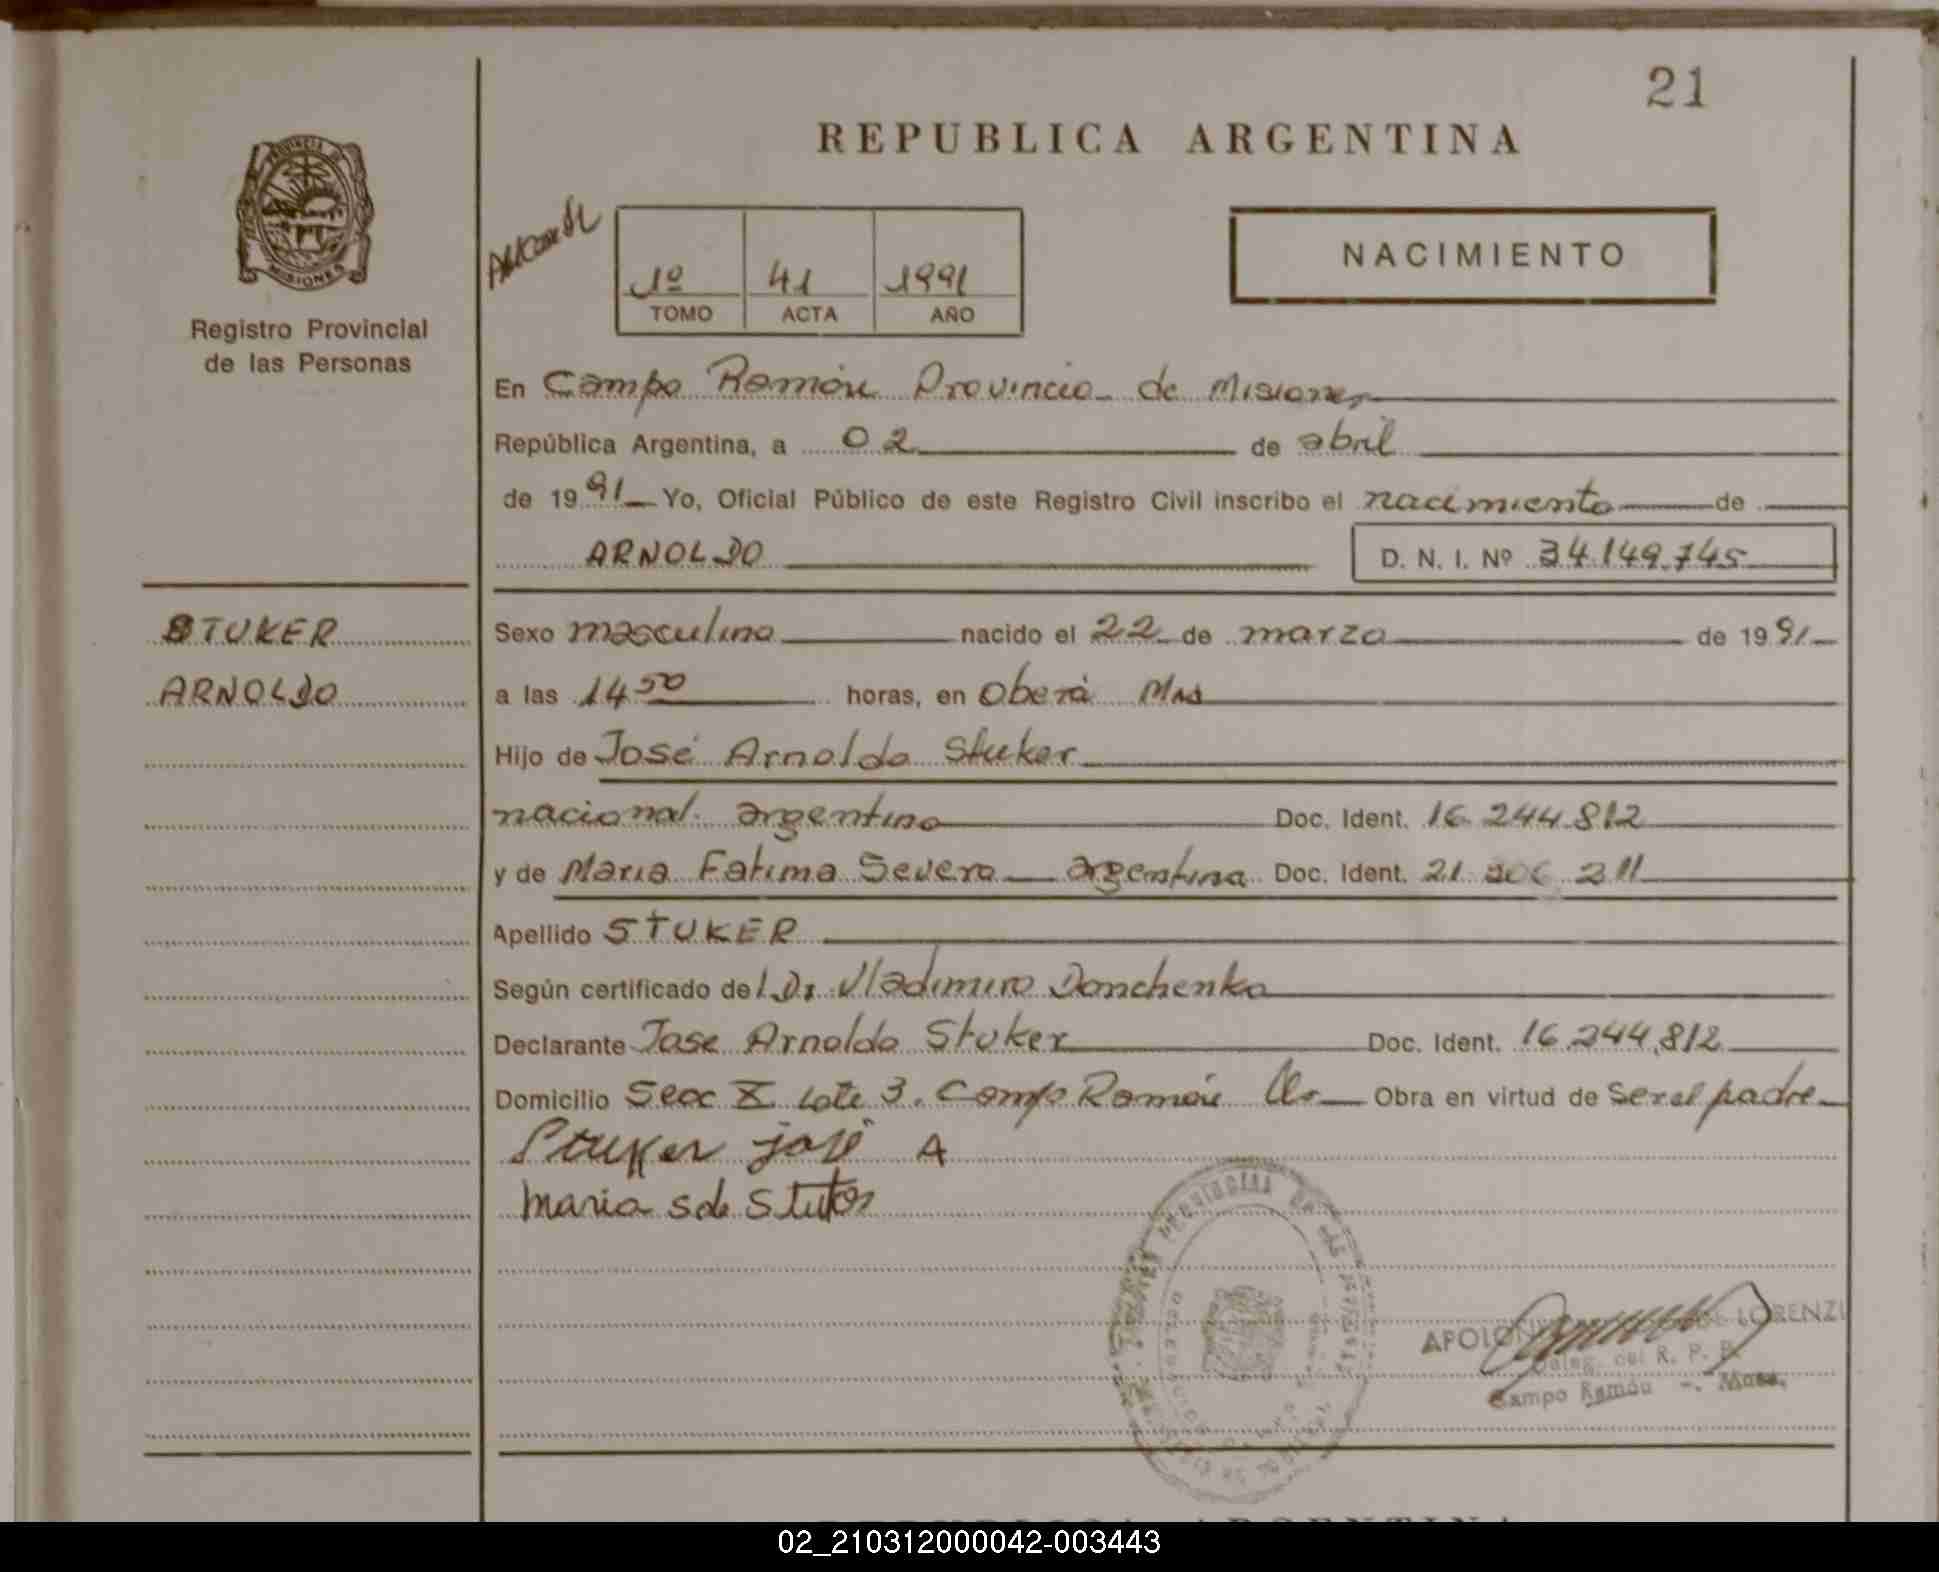 21
REPUBLICA ARGENTINA
PROVINCIA DE
MISIONES
Registro Provincial
de las Personas
1º 41 1991
TOMO ACTA AÑO
NACIMIENTO
En Campo Ramón Provincia de Misiones
República Argentina, a 02 de abril
de 1991 Yo, Oficial Público de este Registro Civil inscribo el nacimiento de
ARNOLDO D. N. I. Nº 34.149.745
STUKER
ARNOLDO
Sexo masculino nacido el 22 de marzo de 1991
a las 14 50 horas, en Oberá Mns
Hijo de José Arnoldo Stuker
nacional. argentino Doc. Ident. 16.244.812
y de Maria Fatima Severo argentina Doc. Ident. 21 306 211
Apellido STUKER
Según certificado del Dr Vladimiro Donchenko
Declarante Jose Arnoldo Stuker Doc. Ident. 16.244.812
Domicilio Secc X Lote 3. Campo Ramón Obra en virtud de Ser el padre
Stuker josé A
Maria S de Stuker
LORENZI
Deleg. del R. P. P.
Campo Ramón -. Mnes.
02_210312000042-003443